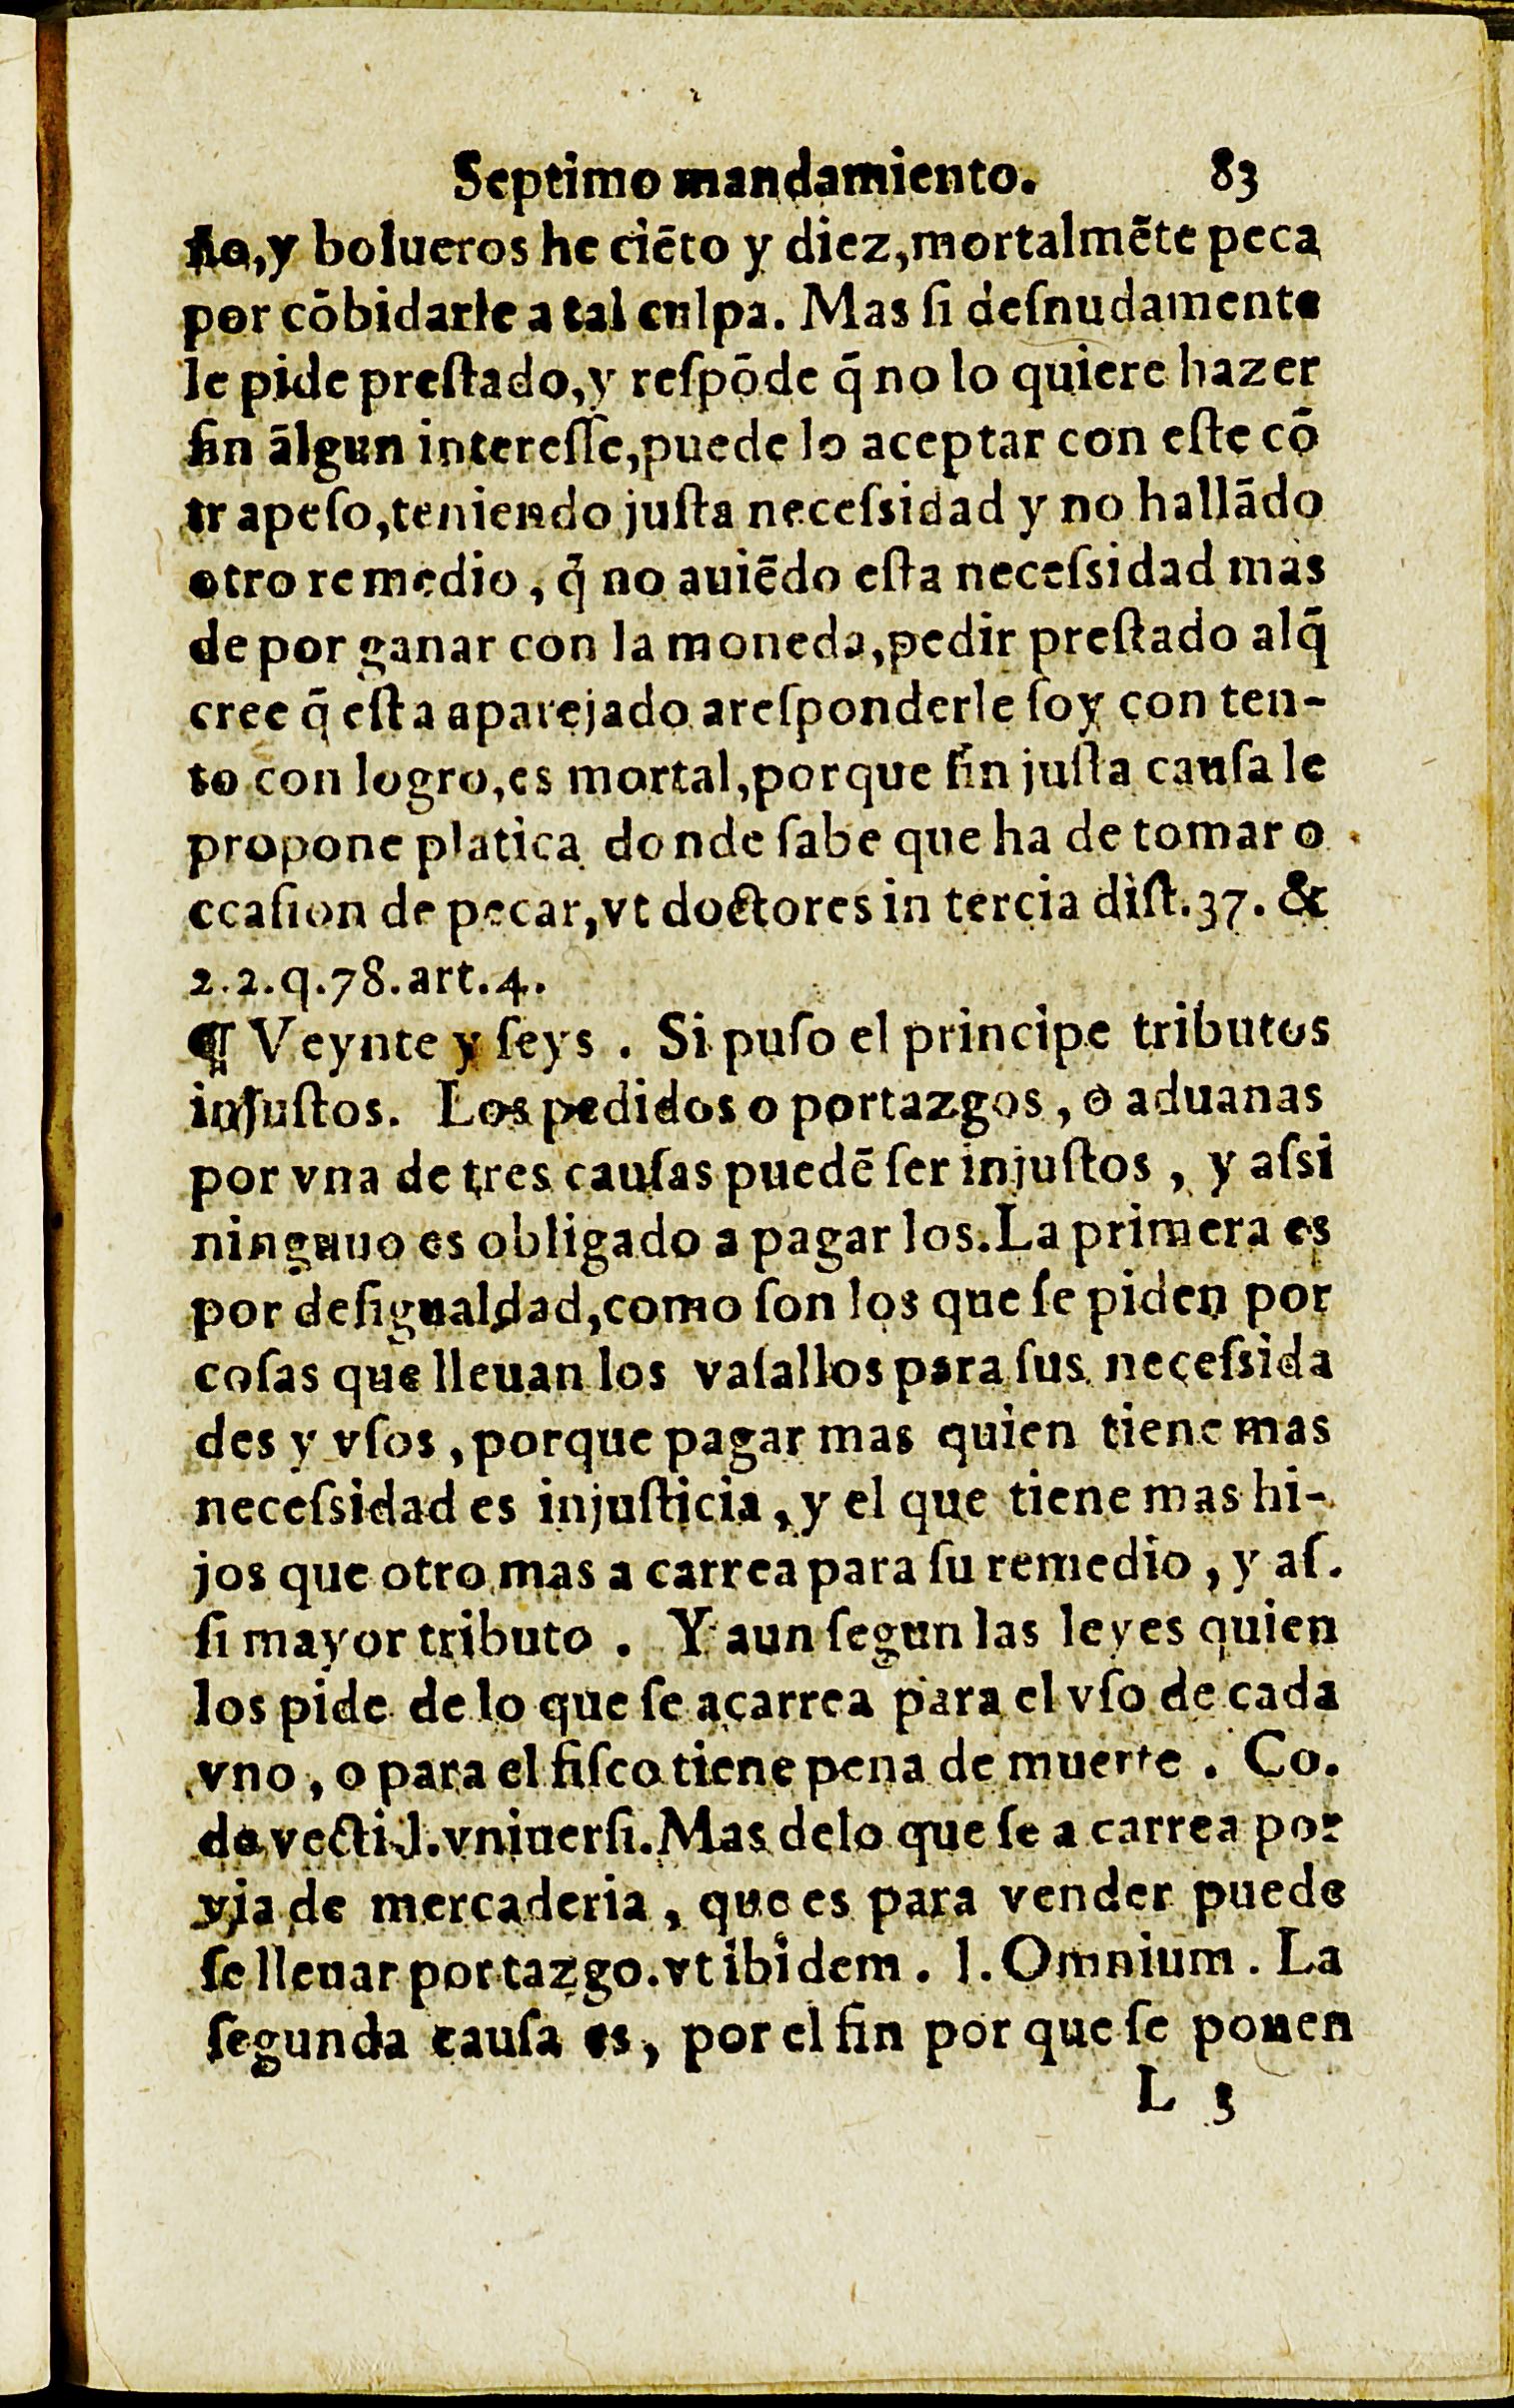 Septimo mandamiento. 83
ño,y bolueros he ciēto y diez,mortalmēte peca
por cōbidarle a tal culpa. Mas ſi deſnudamente
le pide preſtado,y reſpōde q̄ no lo quiere hazer
ſin ālgun intereſſe,puede lo aceptar con eſte cō
tr apeſo,teniendo juſta neceſsidad y no hallādo
otro remedio, q̄ no auiēdo eſta neceſsidad mas
de por ganar con la moneda,pedir preſtado alq̄
cree q̄ eſta aparejado areſponderle ſoy con ten-
to con logro,es mortal,porque ſin juſta cauſa le
propone platica donde ſabe que ha de tomar o
ccaſion de pecar,vt doctores in tercia diſt.37. &
2.2.q.78.art.4.
¶ Veynte y ſeys . Si puſo el principe tributos
injuſtos. Los pedidos o portazgos, o aduanas
por vna de tres cauſas puedē ſer injuſtos, y aſsi
ninguuo es obligado a pagar los.La primera es
por deſigualdad,como ſon los que ſe piden por
coſas que lleuan los vaſallos para ſus neceſsida
des y vſos, porque pagar mas quien tiene mas
neceſsidad es injuſticia, y el que tiene mas hi-
jos que otro mas a carrea para ſu remedio, y aſ.
ſi mayor tributo . Y aun ſegun las leyes quien
los pide de lo que ſe acarrea para el vſo de cada
vno, o para el fiſco tiene pena de muerte . Co.
de vecti.l.vniuerſi.Mas delo que ſe a carrea por
via de mercaderia, que es para vender puede
ſe lleuar portazgo.vt ibidem. l. Omnium. La
ſegunda cauſa es, por el fin por que ſe ponen
L 3